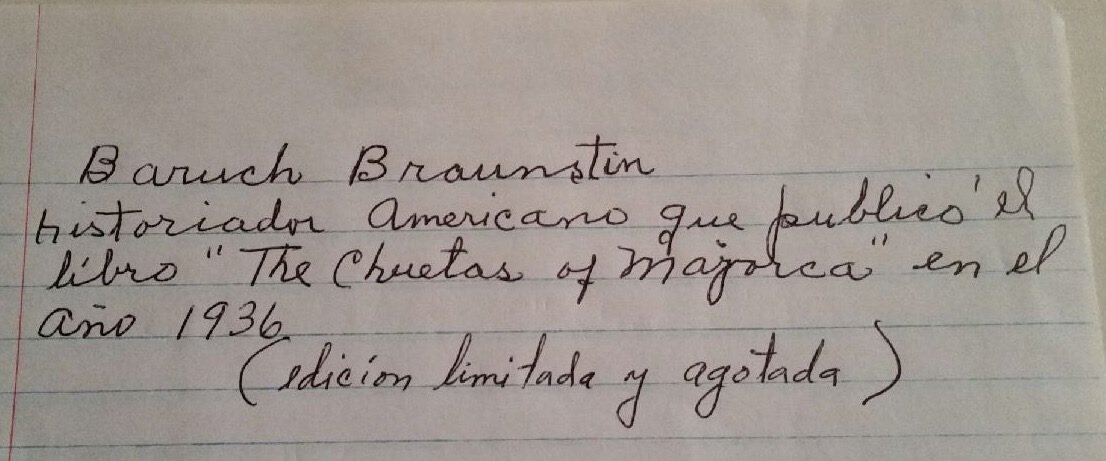 Baruch Braunstin
historiador Americano que publicó el
libro "The Chuetas of Majorca" en el
año 1936
(edición limitada y agotada)